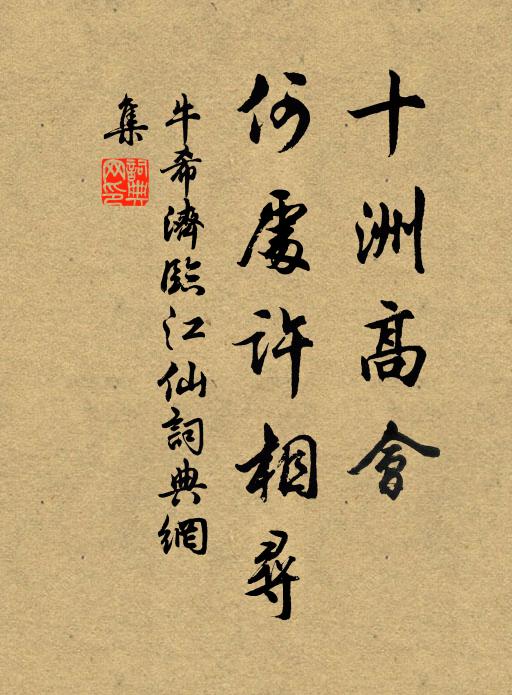 十洲高會
何處許相尋
牛希濟臨江仙詞典網
集
詞典
网印